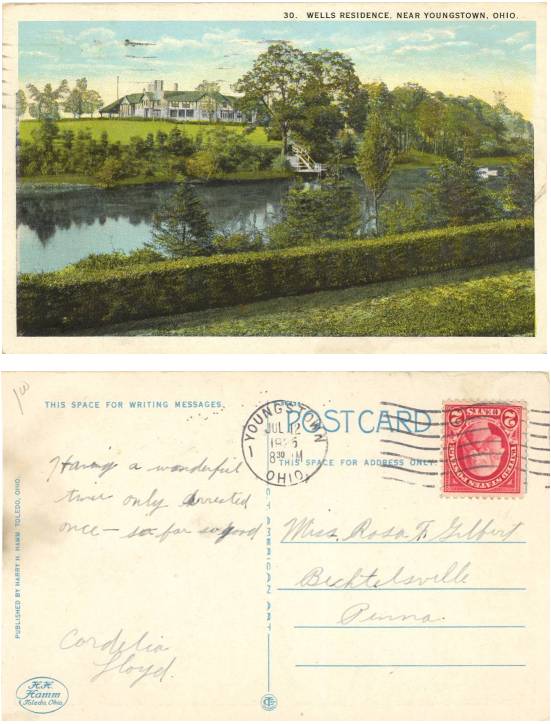 30. WELLS RESIDENCE, NEAR YOUNGSTOWN, OHIO.
THIS SPACE FOR WRITING MESSAGES.
POSTCARD
THIS SPACE FOR ADDRESS ONLY
YOUNGSTOWN
JUL 12
8 30 M
OHIO
2 CENTS 2
UNITED STATES POSTAGE
Having a wonderful
time only arrested
once — so far so good
Cordelia
Lloyd.
Miss. Rosa F. Gilbert
Bechtelsville
Penna.
PUBLISHED BY HARRY H. HAMM. TOLEDO, OHIO.
AMERICAN ART
H.H.
Hamm
Toledo, Ohio.